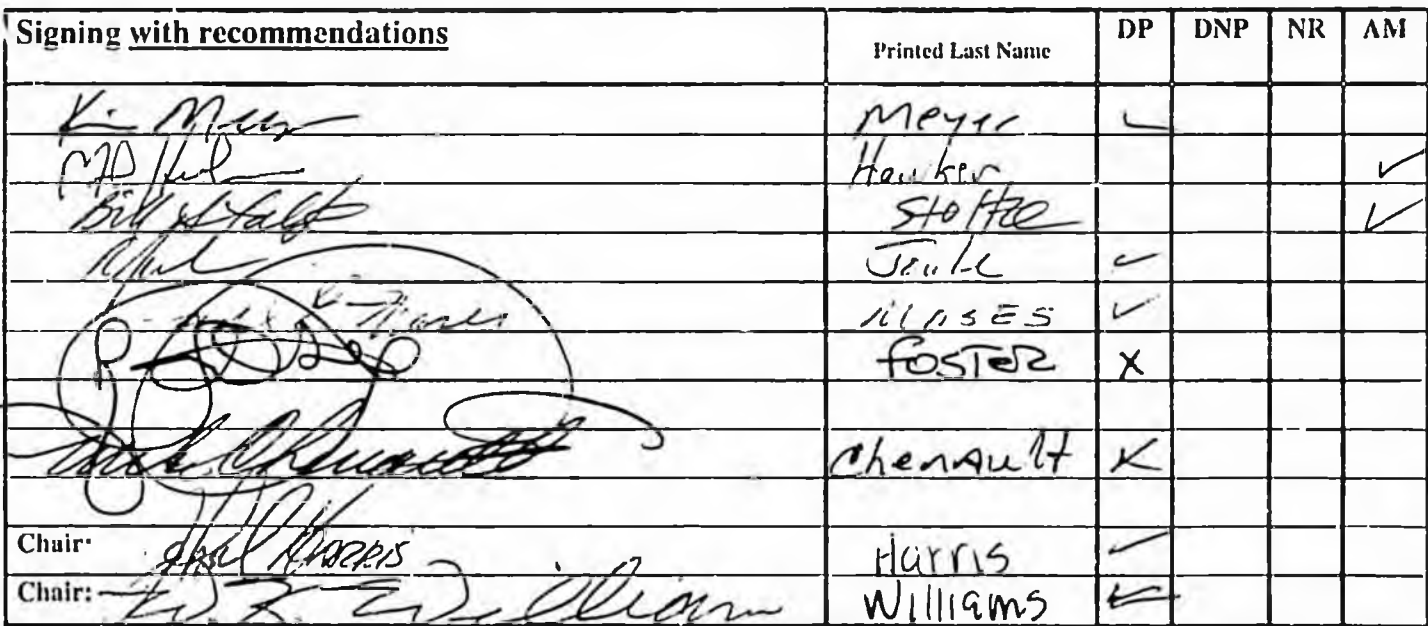 Signing with recommendations Printed Last Name DP DNP NR AM
Kim Meyer Meyer ✓
Hawker ✓
Bill Stoltze Stoltze ✓
✓
Moses Moses ✓
Foster X
Mike Chenault Chenault X
Chair: Harris Harris ✓
Chair: Williams Williams ✓